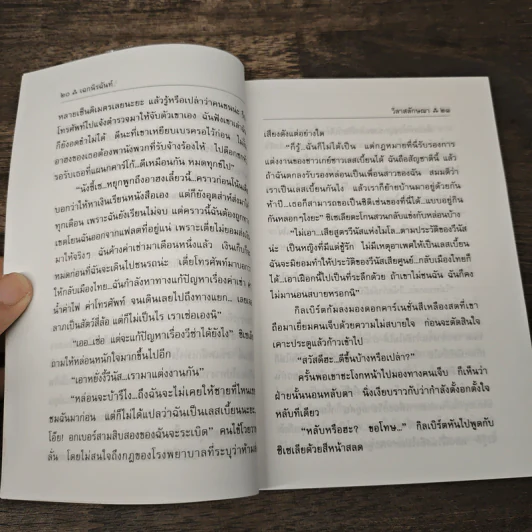 ๒๐ ஃ เอกนิรฉันท์
หลายเซ็นติเมตรเลยนะยะ แล้วรู้หรือเปล่าว่าคนชนน่ะ
โทรศัพท์ไปแจ้งตำรวจมาให้จับตัวเขาเอง ฉันฟังเขาเล่า
ก็ยังอดขำไม่ได้ ดีนะที่เขาเหยียบเบรครอไว้ก่อน
อาฮงของเธอต้องพานังพวกที่รับจ้างร้องไห้
รอรับเถอที่แผนกคาร์โก้..ดีเหมือนกัน หมดทุกข์ไป"
"นังชีเช..หยุดพูกถึงอาฮงเลี้ยวนี้..คราวก่อนโน้น
บอกว่าให้หาเงินเรียนหนังสือเอง แต่ก็ยังอุตส่าห์ส่งมา
ทุกเดือน เพราะฉันยังเรียนไม่จบ แต่คราวนี้ฉันต้องถูก
เขตโยนฉันออกจากแฟลตที่อยู่แน่ เพราะเตี่ยไม่ยอมส่ง
มาให้จริงๆ ฉันค้างค่าเช่ามาเดือนหนึ่งแล้ว เงินเก็บก็
หมดก่อนที่ฉันจะเดินไปชนรถน่ะ เตี่ยโทรศัพท์มาบอก
ให้กลับเมืองไทย..ฉันกำลังหาทางแก้ปัญหาเรื่องค่าเช่า
น้ำค่าไฟ ค่าโทรศัพท์ จนเดินเลยไปถึงทางแยก...
ลาภเป็นสัตว์สี่ล้อ แต่ก็ไม่เป็นไร เราเช่อเองนี่"
"เออ...เช่อ แต่จะแก้ปัญหาเรื่องวีซ่าได้ยังไง" ชิเช
ถามให้หล่อนหนักใจมากขึ้นไปอีก
"เอาหยังงี้วีนัส...เรามาแต่งงานกัน"
"หล่อนจะบ้ารึไง...ถึงฉันจะไม่เคยให้ชายที่ไหน
ชมฉันมาก่อน แต่ก็ไม่ได้แปลว่าฉันเป็นเลสเบี้ยนนะยะ..
โอ๊ย! อกเบอร์สามสิบสองของฉันจะระเบิด" คนไข้โวยวาย
ลั่น โดยไม่สนใจถึงกฎของโรงพยาบาลที่ระบุว่าห้าม
วิลาสลักษณา ஃ ๒๑
เสียงดังแต่อย่างใด
"ก็รู้...ฉันก็ไม่ได้เป็น แต่กฎหมายที่นี่รับรองการ
แต่งงานของชาวเกย์ชาวเลสเบี้ยนได้ ฉันถือสัญชาตินี้ แล้ว
ถ้าฉันตกลงรับรองหล่อนเป็นเพื่อนสาวของฉัน สมมติว่า
เราเป็นเลสเบี้ยนกันไง แล้วเราก็ย้ายบ้านมาอยู่ด้วยกัน
ห้าปี...เธอก็สามารถขอเป็นซิติเซ่นของที่นี่ได้..แบบอยู่กิน
กันหลอกๆไงยะ" ชิเชเลียตะโกนสวนกลับแข่งกับหล่อนบ้าง
"ไม่เอา...เสียสูตรวีนัสแห่งไมโล..ตามประวัติของวีนัส
น่ะ เป็นหญิงที่มีแต่ชู้รัก ไม่มีเหตุอาเพศให้เป็นเลสเบี้ยน
ฉันจะมียอมทำให้ประวัติของวีนัสเสียศูนย์...กลับเมืองไทยก็
ได้..เอาเฝือกนี้ไปเป็นที่ระลึกด้วย ถ้าเขาไม่ชนฉัน ฉันก็คง
ไม่มานอนสบายหรอกนิ"
กิลเบิร์ตก้มลงมองดอกคาร์เนชั่นสีเหลืองสดที่เขา
ถือมาเยี่ยมคนเจ็บด้วยความไม่สบายใจ ก่อนจะตัดสินใจ
เคาะประตูแล้วก้าวเข้าไป
"สวัสดีฮะ...ดีขึ้นบ้างหรือเปล่า?"
ครั้นพอเขาชะโงกหน้าไปมองทางคนเจ็บ ก็เห็นว่า
ฝ่ายนั้นนอนหลับตา นิ่งเงียบราวกับว่ากำลังตั้งอกตั้งใจ
หลับทีเดียว
"หลับหรือฮะ? ขอโทษ..." กิลเบิร์ตหันไปพูดกับ
ชิเชเลียด้วยสีหน้าสลด